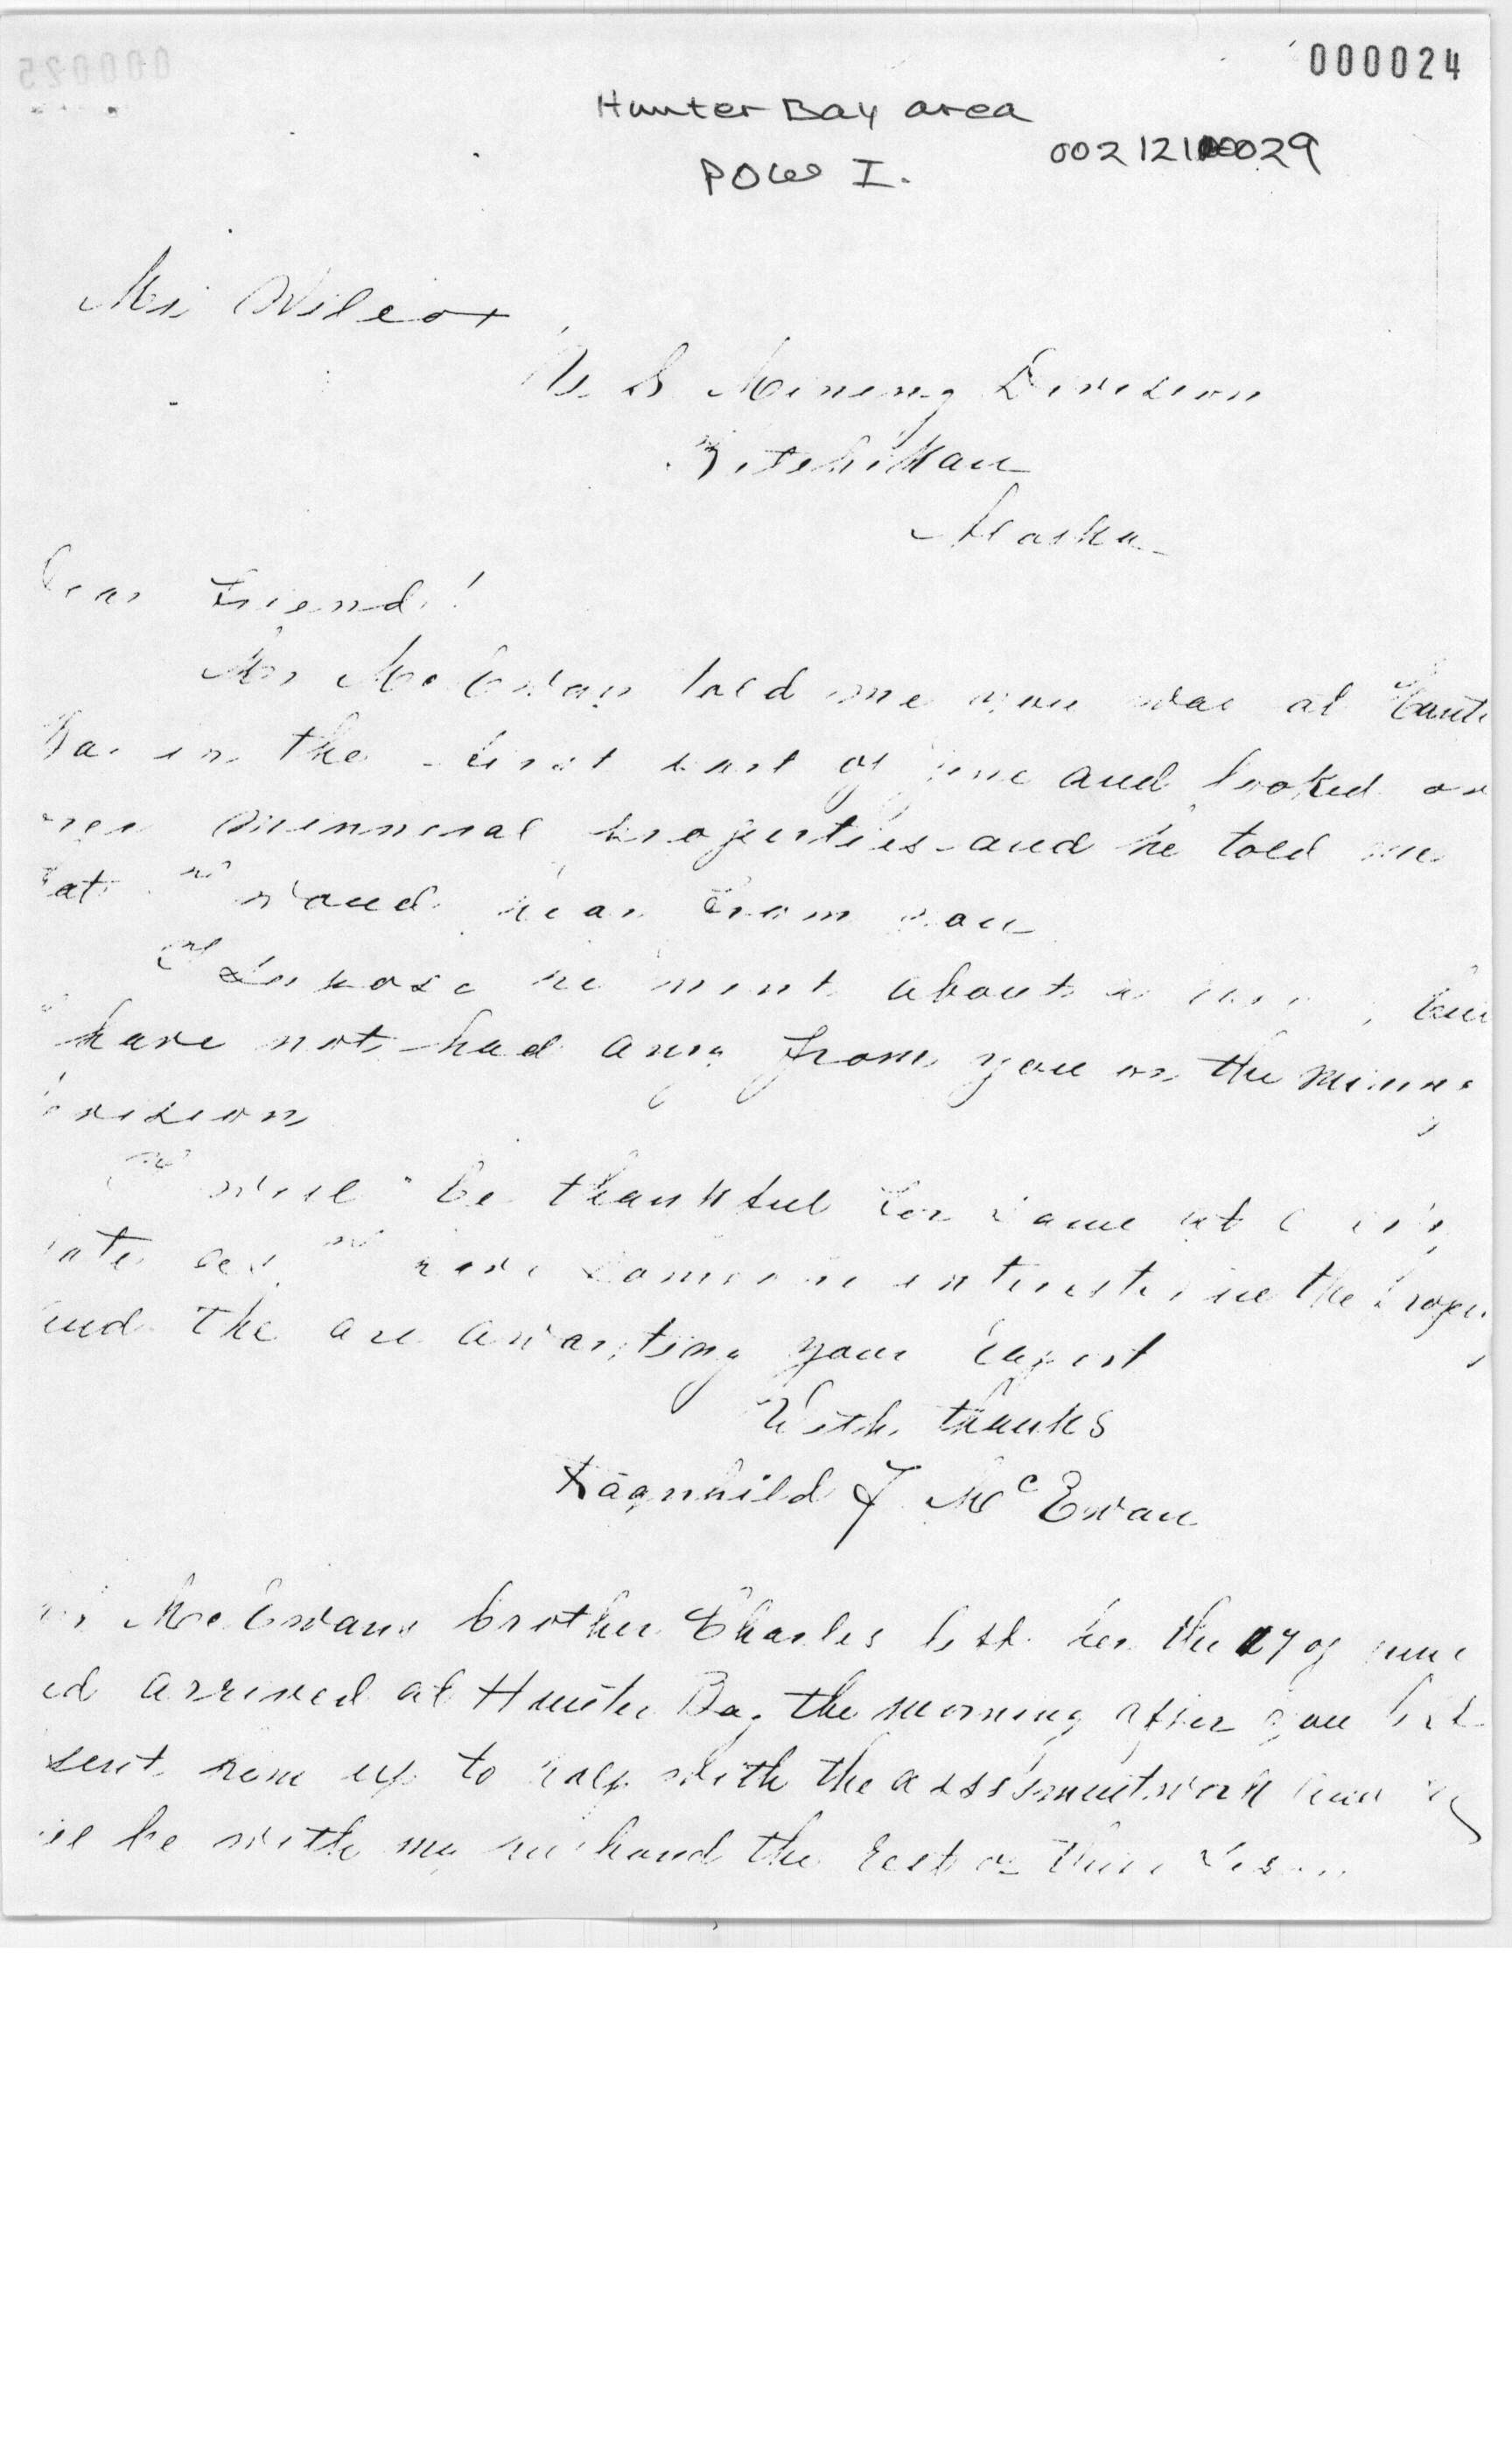 000024
000025
Hunter Bay area
00212100029
POW I.
Mr Wilcox
U. S Mining Division
Ketchikan
Alaska
Dear Friend!
Mr Mc Ewan told me you was at Hunte
Ba in the first part of June and looked ov
minneral properties and he told me
hear from you
I supose he ment about a but
I have not had any from you or the mining
Division
I will be thankful for same at
have some interest in the proper
and the are awaiting your report
With thanks
Ragnhild J. McEwan
Mr Mc Ewans brother Charles left her the 27 of June
ed arrived at Hunter Bay the morning after you left
sent him up to help with the assismentwork and
ll be with my husband the rest of this